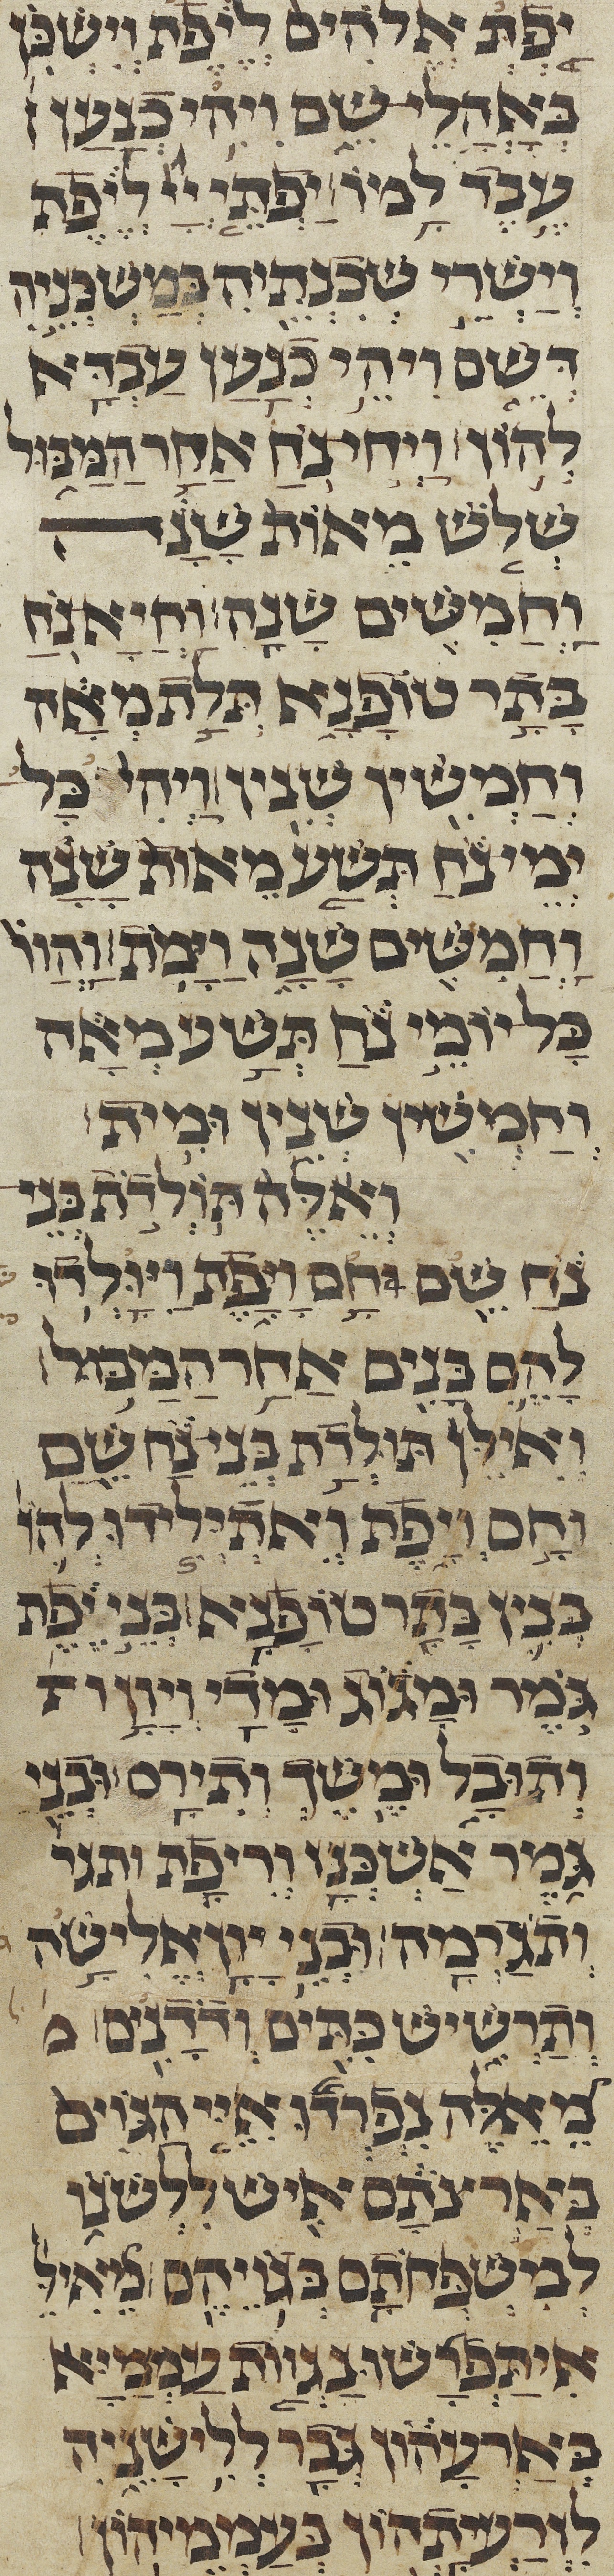 יַפְתְּ אֱלֹהִים לְיֶפֶת וְיִשְׁכֹּן
בְּאָהֳלֵי שֵׁם וִיהִי כְנַעַן
עֶבֶד לָמוֹ יַפְתֵּי יְיָ לְיֶפֶת
וְיַשְׁרֵי שְׁכִנְתֵּיהּ בְּמַשְׁכְּנֵיהּ
דְּשֵׁם וִיהֵי כְנַעַן עַבְדָּא
לְהוֹן וַיְחִי נֹחַ אַחַר הַמַּבּוּל
שְׁלֹשׁ מֵאוֹת שָׁנָה
וַחֲמִשִּׁים שָׁנָה וַחֲיָא נֹחַ
בָּתַר טוֹפָנָא תְּלָת מְאָה
וְחַמְשִׁין שְׁנִין וַיְהִי כָּל
יְמֵי נֹחַ תְּשַׁע מֵאוֹת שָׁנָה
וַחֲמִשִּׁים שָׁנָה וַיָּמֹת וַהֲווֹ
כָּל יוֹמֵי נֹחַ תְּשַׁע מְאָה
וְחַמְשִׁין שְׁנִין וּמִית
וְאֵלֶּה תּוֹלְדֹת בְּנֵי
נֹחַ שֵׁם חָם וָיָפֶת וַיִּוָּלְדוּ
לָהֶם בָּנִים אַחַר הַמַּבּוּל
וְאִילֵּין תּוּלְדָת בְּנֵי נֹחַ שֵׁם
וְחָם וְיָפֶת וְאִתְיְלִידוּ לְהוֹן
בְּנִין בָּתַר טוֹפָנָא בְּנֵי יֶפֶת
גֹּמֶר וּמָגוֹג וּמָדַי וְיָוָן ות
וְתוּבָל וּמֶשֶׁךְ וְתִירָס וּבְנֵי
גֹּמֶר אַשְׁכְּנַז וְרִיפַת ותגר
וְתֹגַרְמָה וּבְנֵי יָוָן אֱלִישָׁה
וְתַרְשִׁישׁ כִּתִּים וְדֹדָנִים מ
מֵאֵלֶּה נִפְרְדוּ אִיֵּי הַגּוֹיִם
בְּאַרְצֹתָם אִישׁ לִלְשֹׁנוֹ
לְמִשְׁפְּחֹתָם בְּגוֹיֵהֶם מֵאִילֵּין
אִיתְפָּרָשׁוּ נַגְוָת עַמְמַיָּא
בְּאַרְעָהוֹן גְּבַר לְלִישָּׁנֵיהּ
לְזַרְעֲיָתְהוֹן בְּעַמְמֵיהוֹן